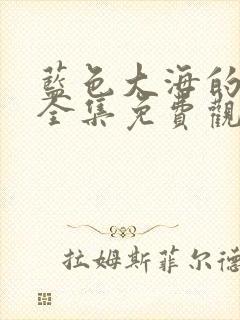 藍色大海的
全集免費觀
拉姆斯菲尔德